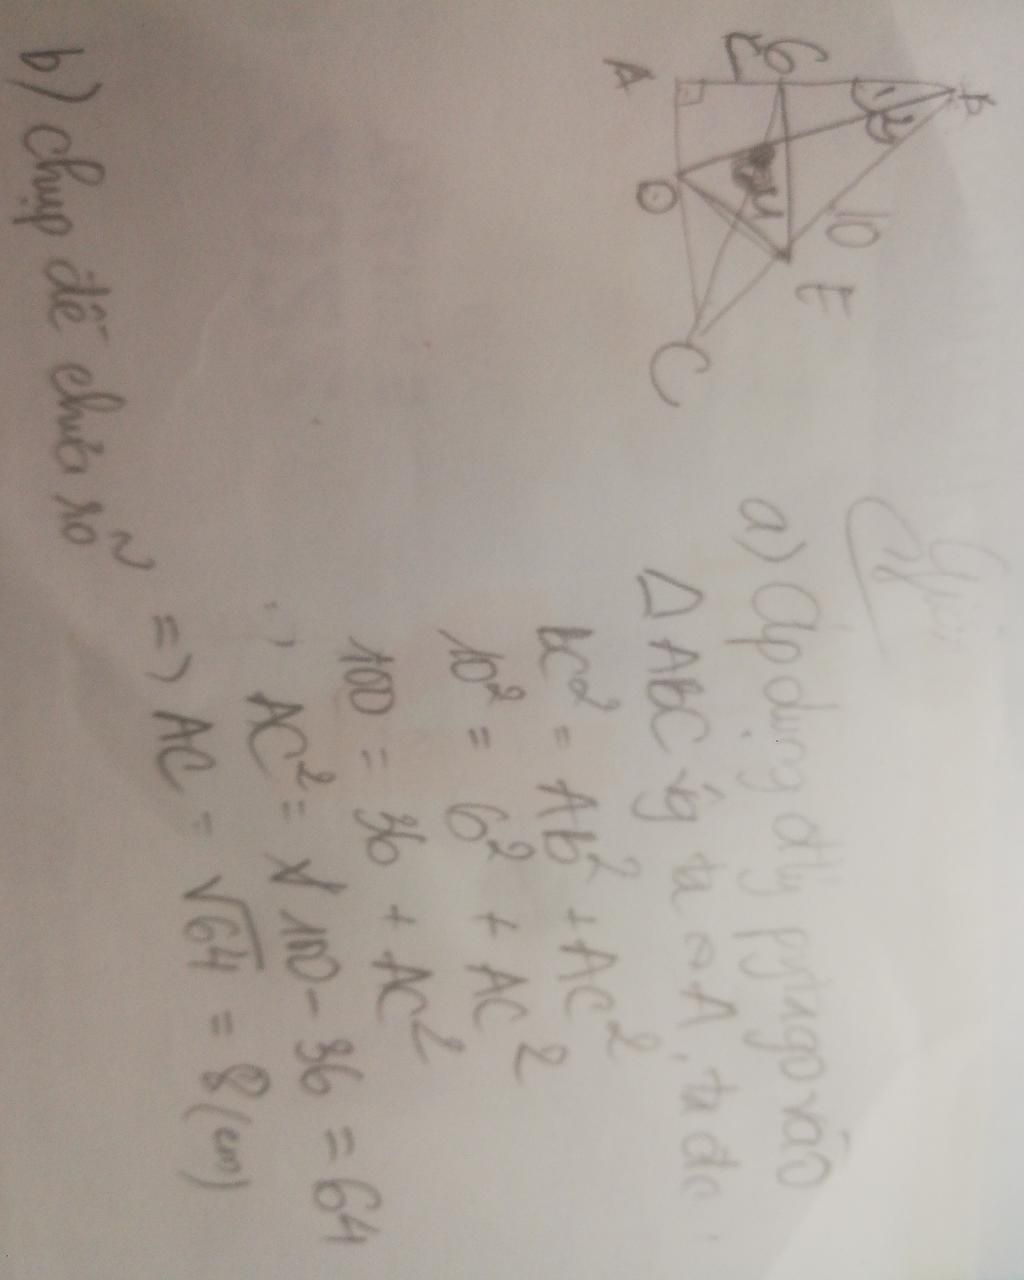 B
1
2
6
10
E
M
A
D
C
Giải
a) Áp dụng đlý pytago vào
Δ ABC vg tại A, ta đc
bc² = Ab² + AC²
10² = 6² + AC²
100 = 36 + AC²
AC² = 100 - 36 = 64
=> AC = √64 = 8 (cm)
b) chụp đề chưa rõ